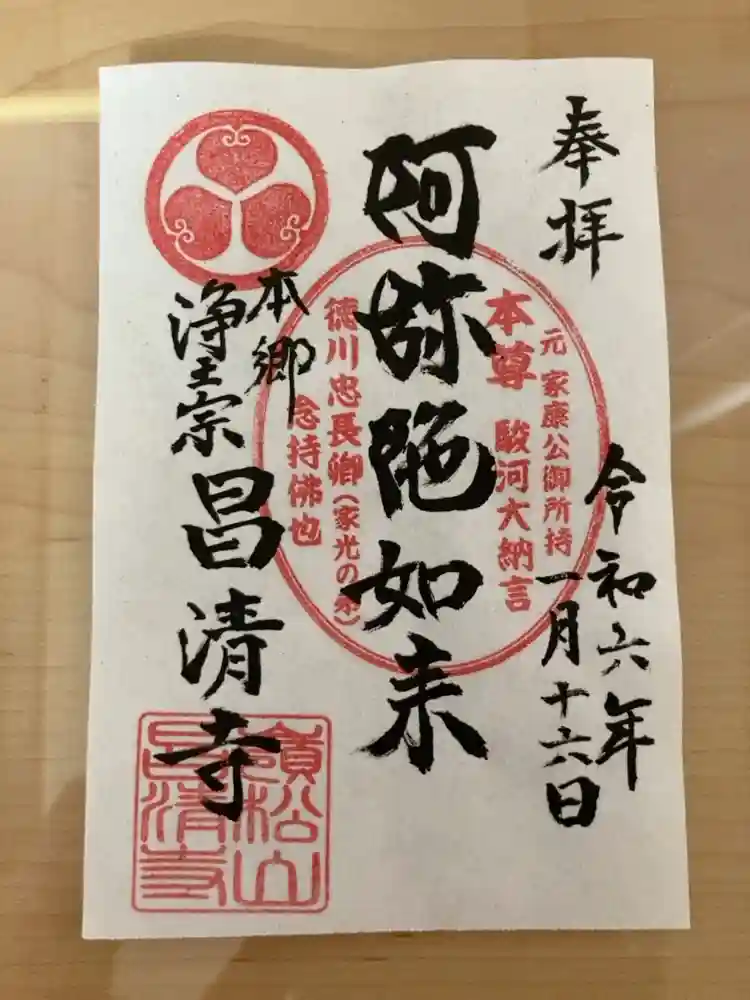 奉拝
令和六年
一月十六日
阿弥陀如来
元 家康公御所持
本尊 駿河大納言
徳川忠長卿(家光の弟)
念持佛也
本郷
浄土宗
昌清寺
嶺松山
昌清寺